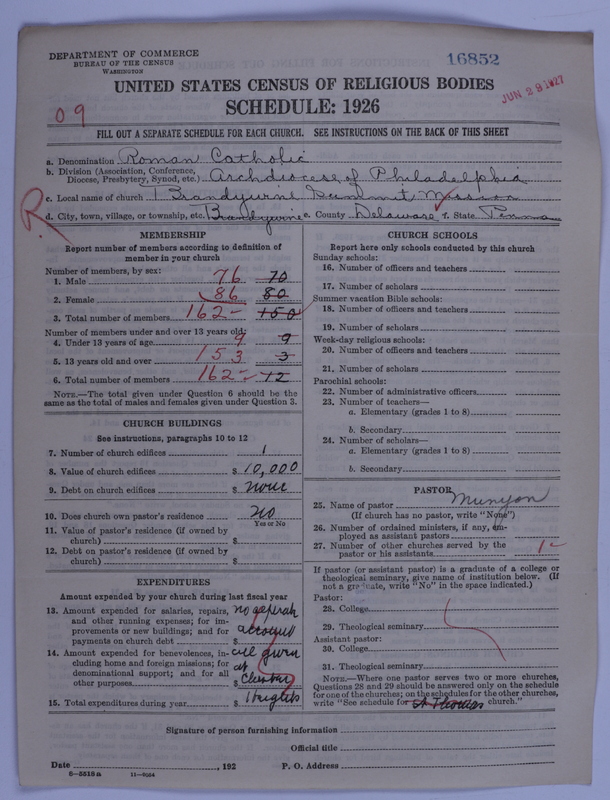 DEPARTMENT OF COMMERCE
BUREAU OF THE CENSUS
WASHINGTON
16852
JUN 29 1927
UNITED STATES CENSUS OF RELIGIOUS BODIES
SCHEDULE: 1926
09
FILL OUT A SEPARATE SCHEDULE FOR EACH CHURCH. SEE INSTRUCTIONS ON THE BACK OF THIS SHEET
a. Denomination Roman Catholic
b. Division (Association, Conference, Diocese, Presbytery, Synod, etc.) Archdiocese of Philadelphia
c. Local name of church Brandywine Summit Mission
R.
d. City, town, village, or township, etc. Brandywine e. County Delaware f. State Penna
MEMBERSHIP
Report number of members according to definition of
member in your church
Number of members, by sex:
1. Male 76 70
2. Female 86 80
3. Total number of members 162 150
Number of members under and over 13 years old:
4. Under 13 years of age 9 9
5. 13 years old and over 153 3
6. Total number of members 162 12
NOTE.—The total given under Question 6 should be the
same as the total of males and females given under Question 3.
CHURCH BUILDINGS
See instructions, paragraphs 10 to 12
7. Number of church edifices 1
8. Value of church edifices $ 10,000
9. Debt on church edifices $ none
10. Does church own pastor's residence No
Yes or No
11. Value of pastor's residence (if owned by
church) $
12. Debt on pastor's residence (if owned by
church) $
EXPENDITURES
Amount expended by your church during last fiscal year
13. Amount expended for salaries, repairs, no
and other running expenses; for im-
provements or new buildings; and for account
payments on church debt $
14. Amount expended for benevolences, in- all given
cluding home and foreign missions; for at
denominational support; and for all
other purposes $
15. Total expenditures during year $ Heights
CHURCH SCHOOLS
Report here only schools conducted by this church
Sunday schools:
16. Number of officers and teachers
17. Number of scholars
Summer vacation Bible schools:
18. Number of officers and teachers
19. Number of scholars
Week-day religious schools:
20. Number of officers and teachers
21. Number of scholars
Parochial schools:
22. Number of administrative officers
23. Number of teachers—
a. Elementary (grades 1 to 8)
b. Secondary
24. Number of scholars—
a. Elementary (grades 1 to 8)
b. Secondary
PASTOR
25. Name of pastor Munyon
(If church has no pastor, write "None")
26. Number of ordained ministers, if any, em-
ployed as assistant pastors
27. Number of other churches served by the
pastor or his assistants 1
If pastor (or assistant pastor) is a graduate of a college or
theological seminary, give name of institution below. (If
not a graduate, write "No" in the space indicated.)
Pastor:
28. College
29. Theological seminary
Assistant pastor:
30. College
31. Theological seminary
NOTE.—Where one pastor serves two or more churches,
Questions 28 and 29 should be answered only on the schedule
for one of the churches; on the schedules for the other churches,
write "See schedule for St Thomas church."
Signature of person furnishing information
Official title
Date , 192 P. O. Address
8-5518a 11-9054